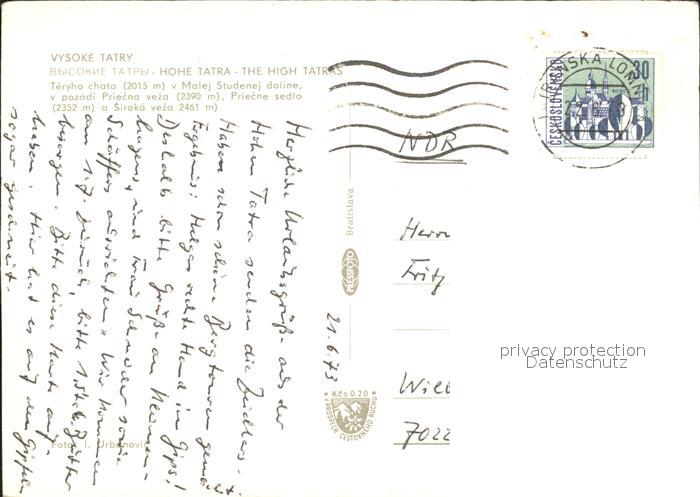 VYSOKE TATRY
ВЫСОКИЕ ТАТРЫ - HOHE TATRA - THE HIGH TATRAS
Téryho chata (2015 m) v Malej Studenej doline,
v pozadí Priečna veža (2390 m), Priečne sedlo
(2352 m) a Široká veža 2461 m)
Herzliche Urlaubsgrüße aus der
Hohen Tatra senden die
Haben schon schöne Bergtouren gemacht.
Ergebnis: Helgas rechte Hand in Gips!
Deshalb bitte Grüße an
und Frau Schneider sowie
Schäffers ausrichten. Wir kommen
am 1.7. zurück, bitte 1 Stck. Butter
besorgen. Bitte diese Karte auf-
heben. Hier hat es auf den Gipfeln
sogar geschneit.
21.6.73
Foto: I. Urbanovič
Bratislava
PRESSFOTO
Kčs 0.20
V PROSPECH CESTOVNÉHO RUCHU
NDR
Herrn
Fritz
ČESKOSLOVENSKO
30 h
privacy protection
Datenschutz